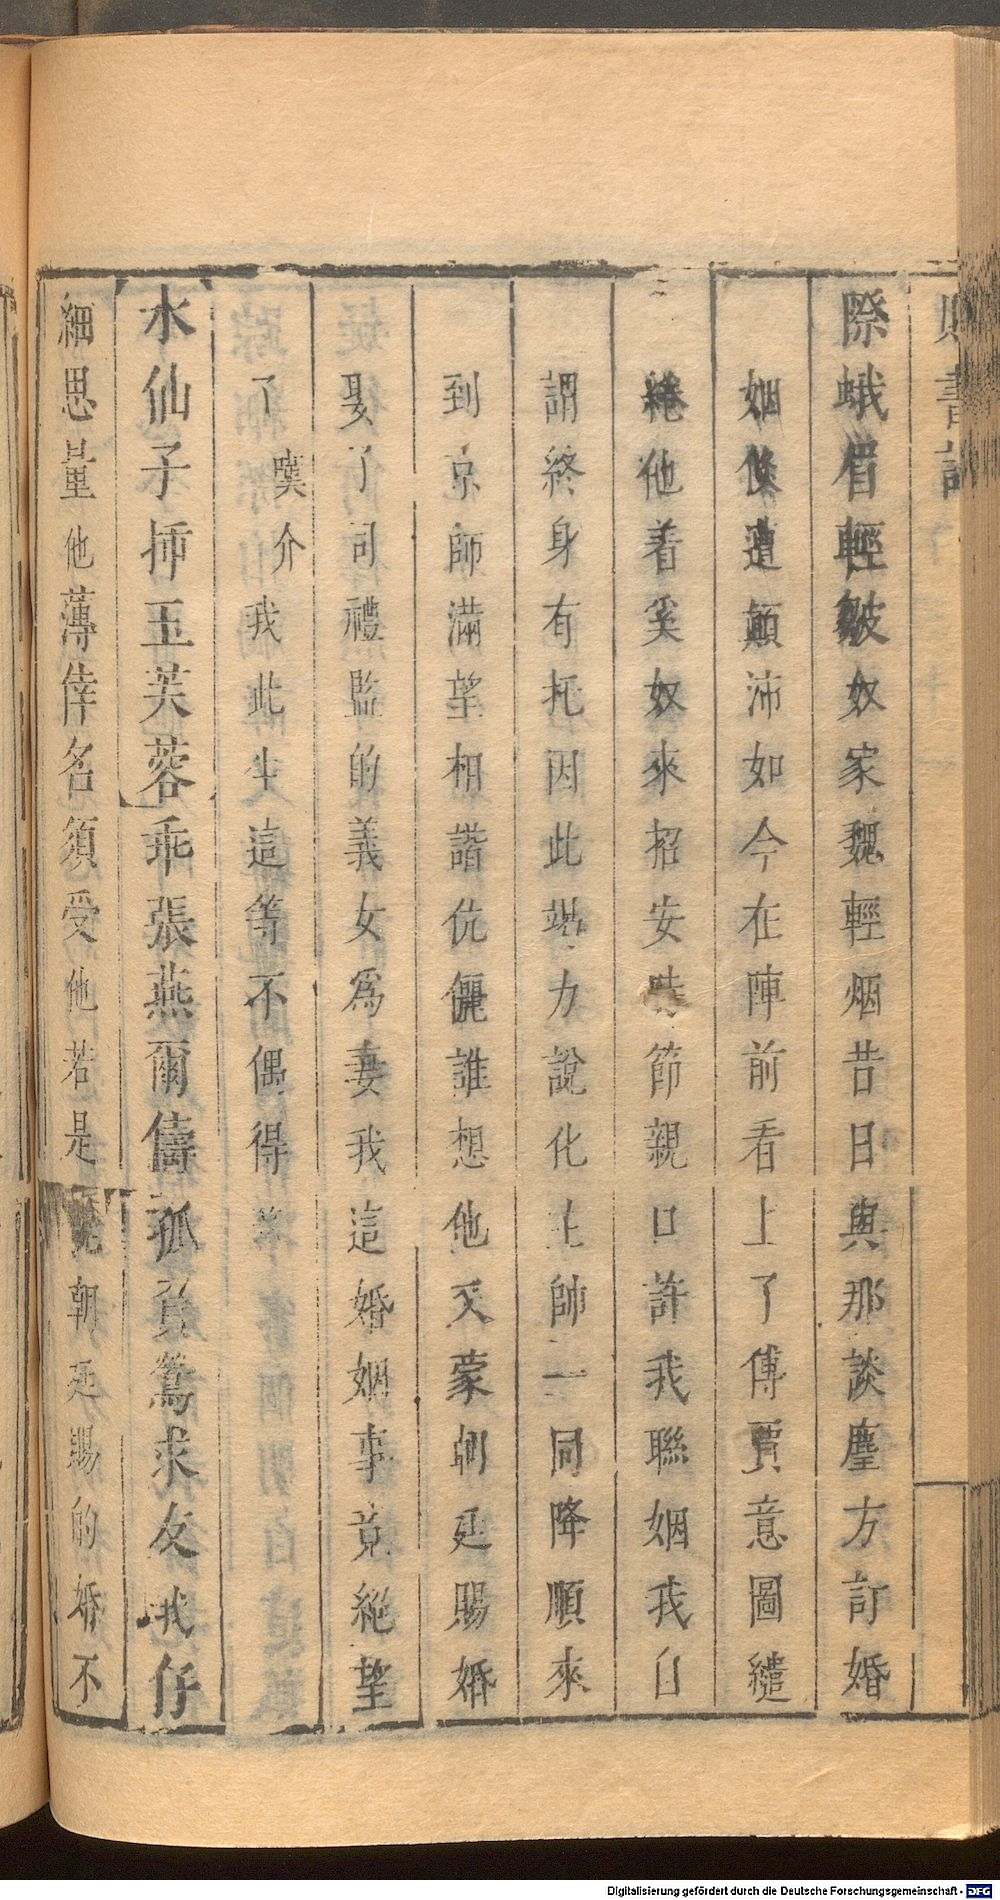 書記
際蛾眉輕皺奴家魏輕烟昔日與那談塵方訂婚
姻倏遭顛沛如今在陣前看上了傅賈意圖繾
綣他着奚奴來招安時節親口許我聯姻我自
謂終身有托因此竭力說化主帥一同降順來
到京師滿望相諧伉儷誰想他又蒙朝廷賜婚
娶了司禮監的義女爲妻我這婚姻事竟絕望
了嘆介我此生這等不偶得
水仙子挿玉芙蓉乖張燕爾儔孤負鴛求友我仔
細思量他薄倖名須受他若是朝廷賜的婚不
Digitalisierung gefördert durch die Deutsche Forschungsgemeinschaft - DFG